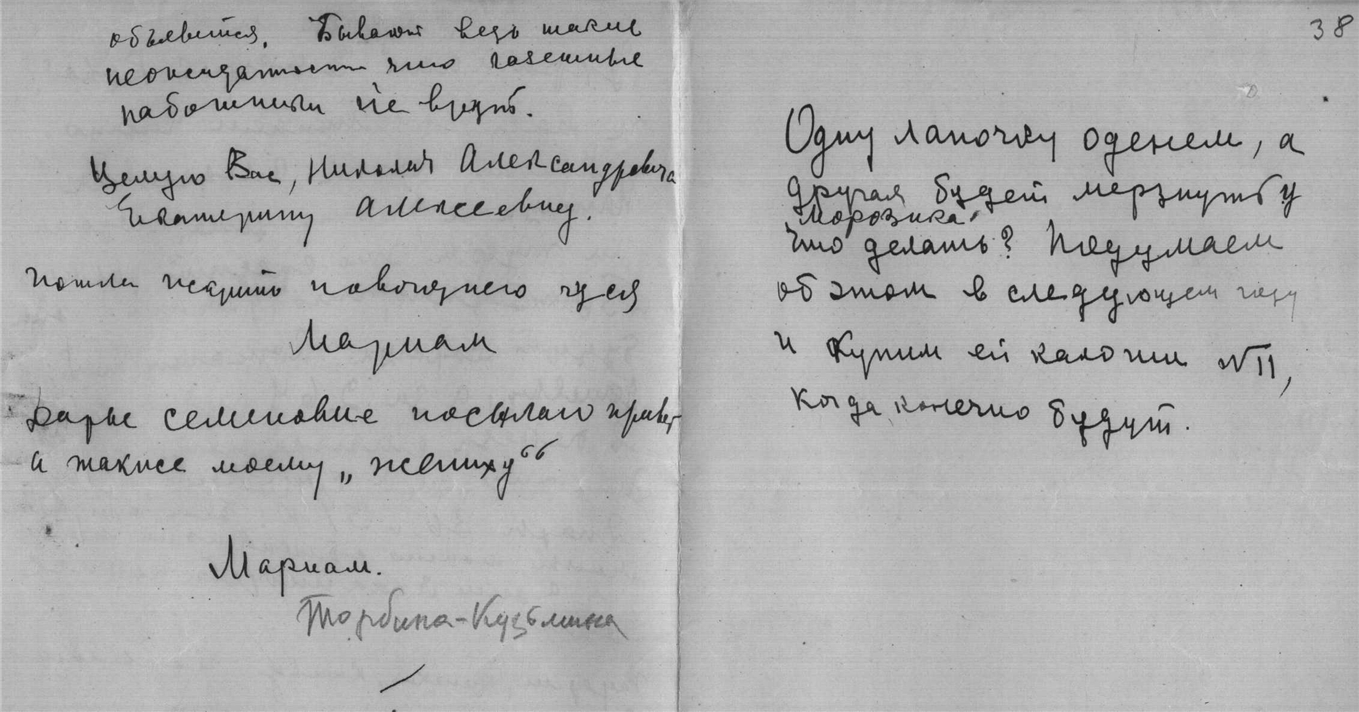 объявится. Бывают ведь такие
неожиданности что газетные
работники не врут.
Целую Вас, Николая Александровича
Екатерину Алексеевну.
Пошла жарить новогоднего гуся
Мариам
Дарье Семеновне посылаю привет
а также моему „жениху“
Мариам.
Торбина-Кузьмина
38
Одну лапочку оденем, а
другая будет мерзнуть у
Морозика
Что делать? Подумаем
об этом в следующем году
и купим ей калоши N11,
когда конечно будут.